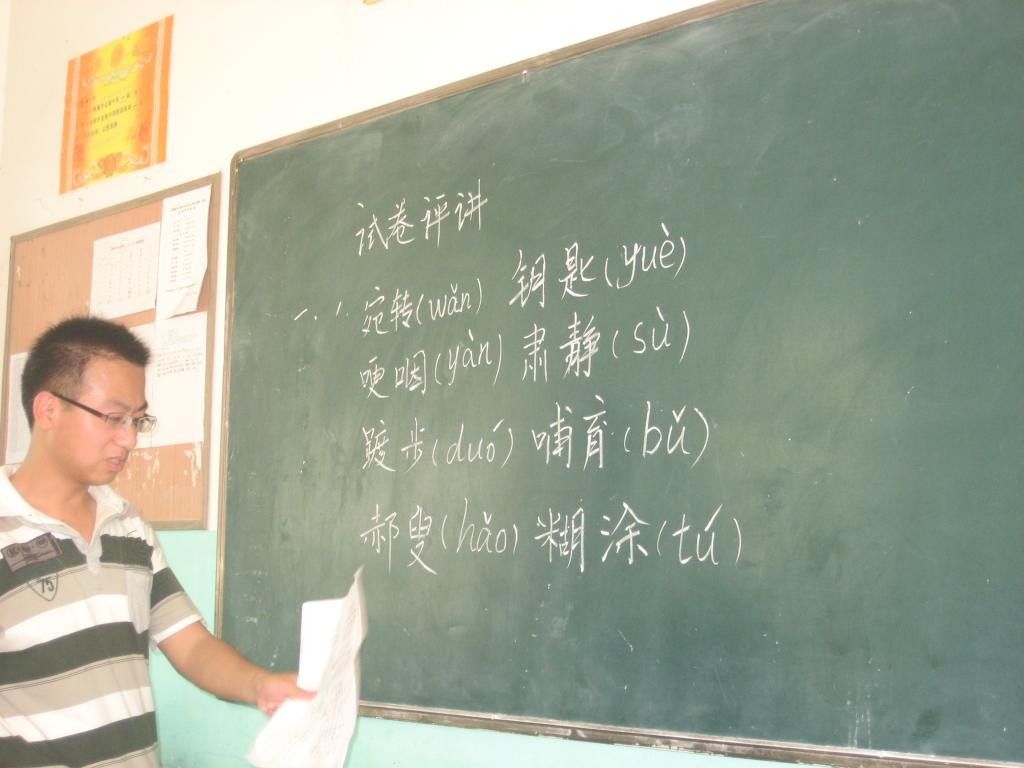 试卷评讲
一、1. 宛转(wǎn) 钥匙(yuè)
哽咽(yàn) 肃静(sù)
踱步(duó) 哺育(bǔ)
郝叟(hǎo) 糊涂(tú)
75